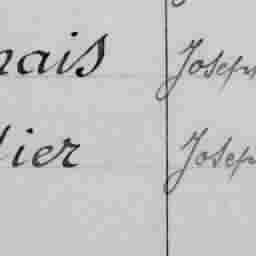 nais Joseph
lier Joseph